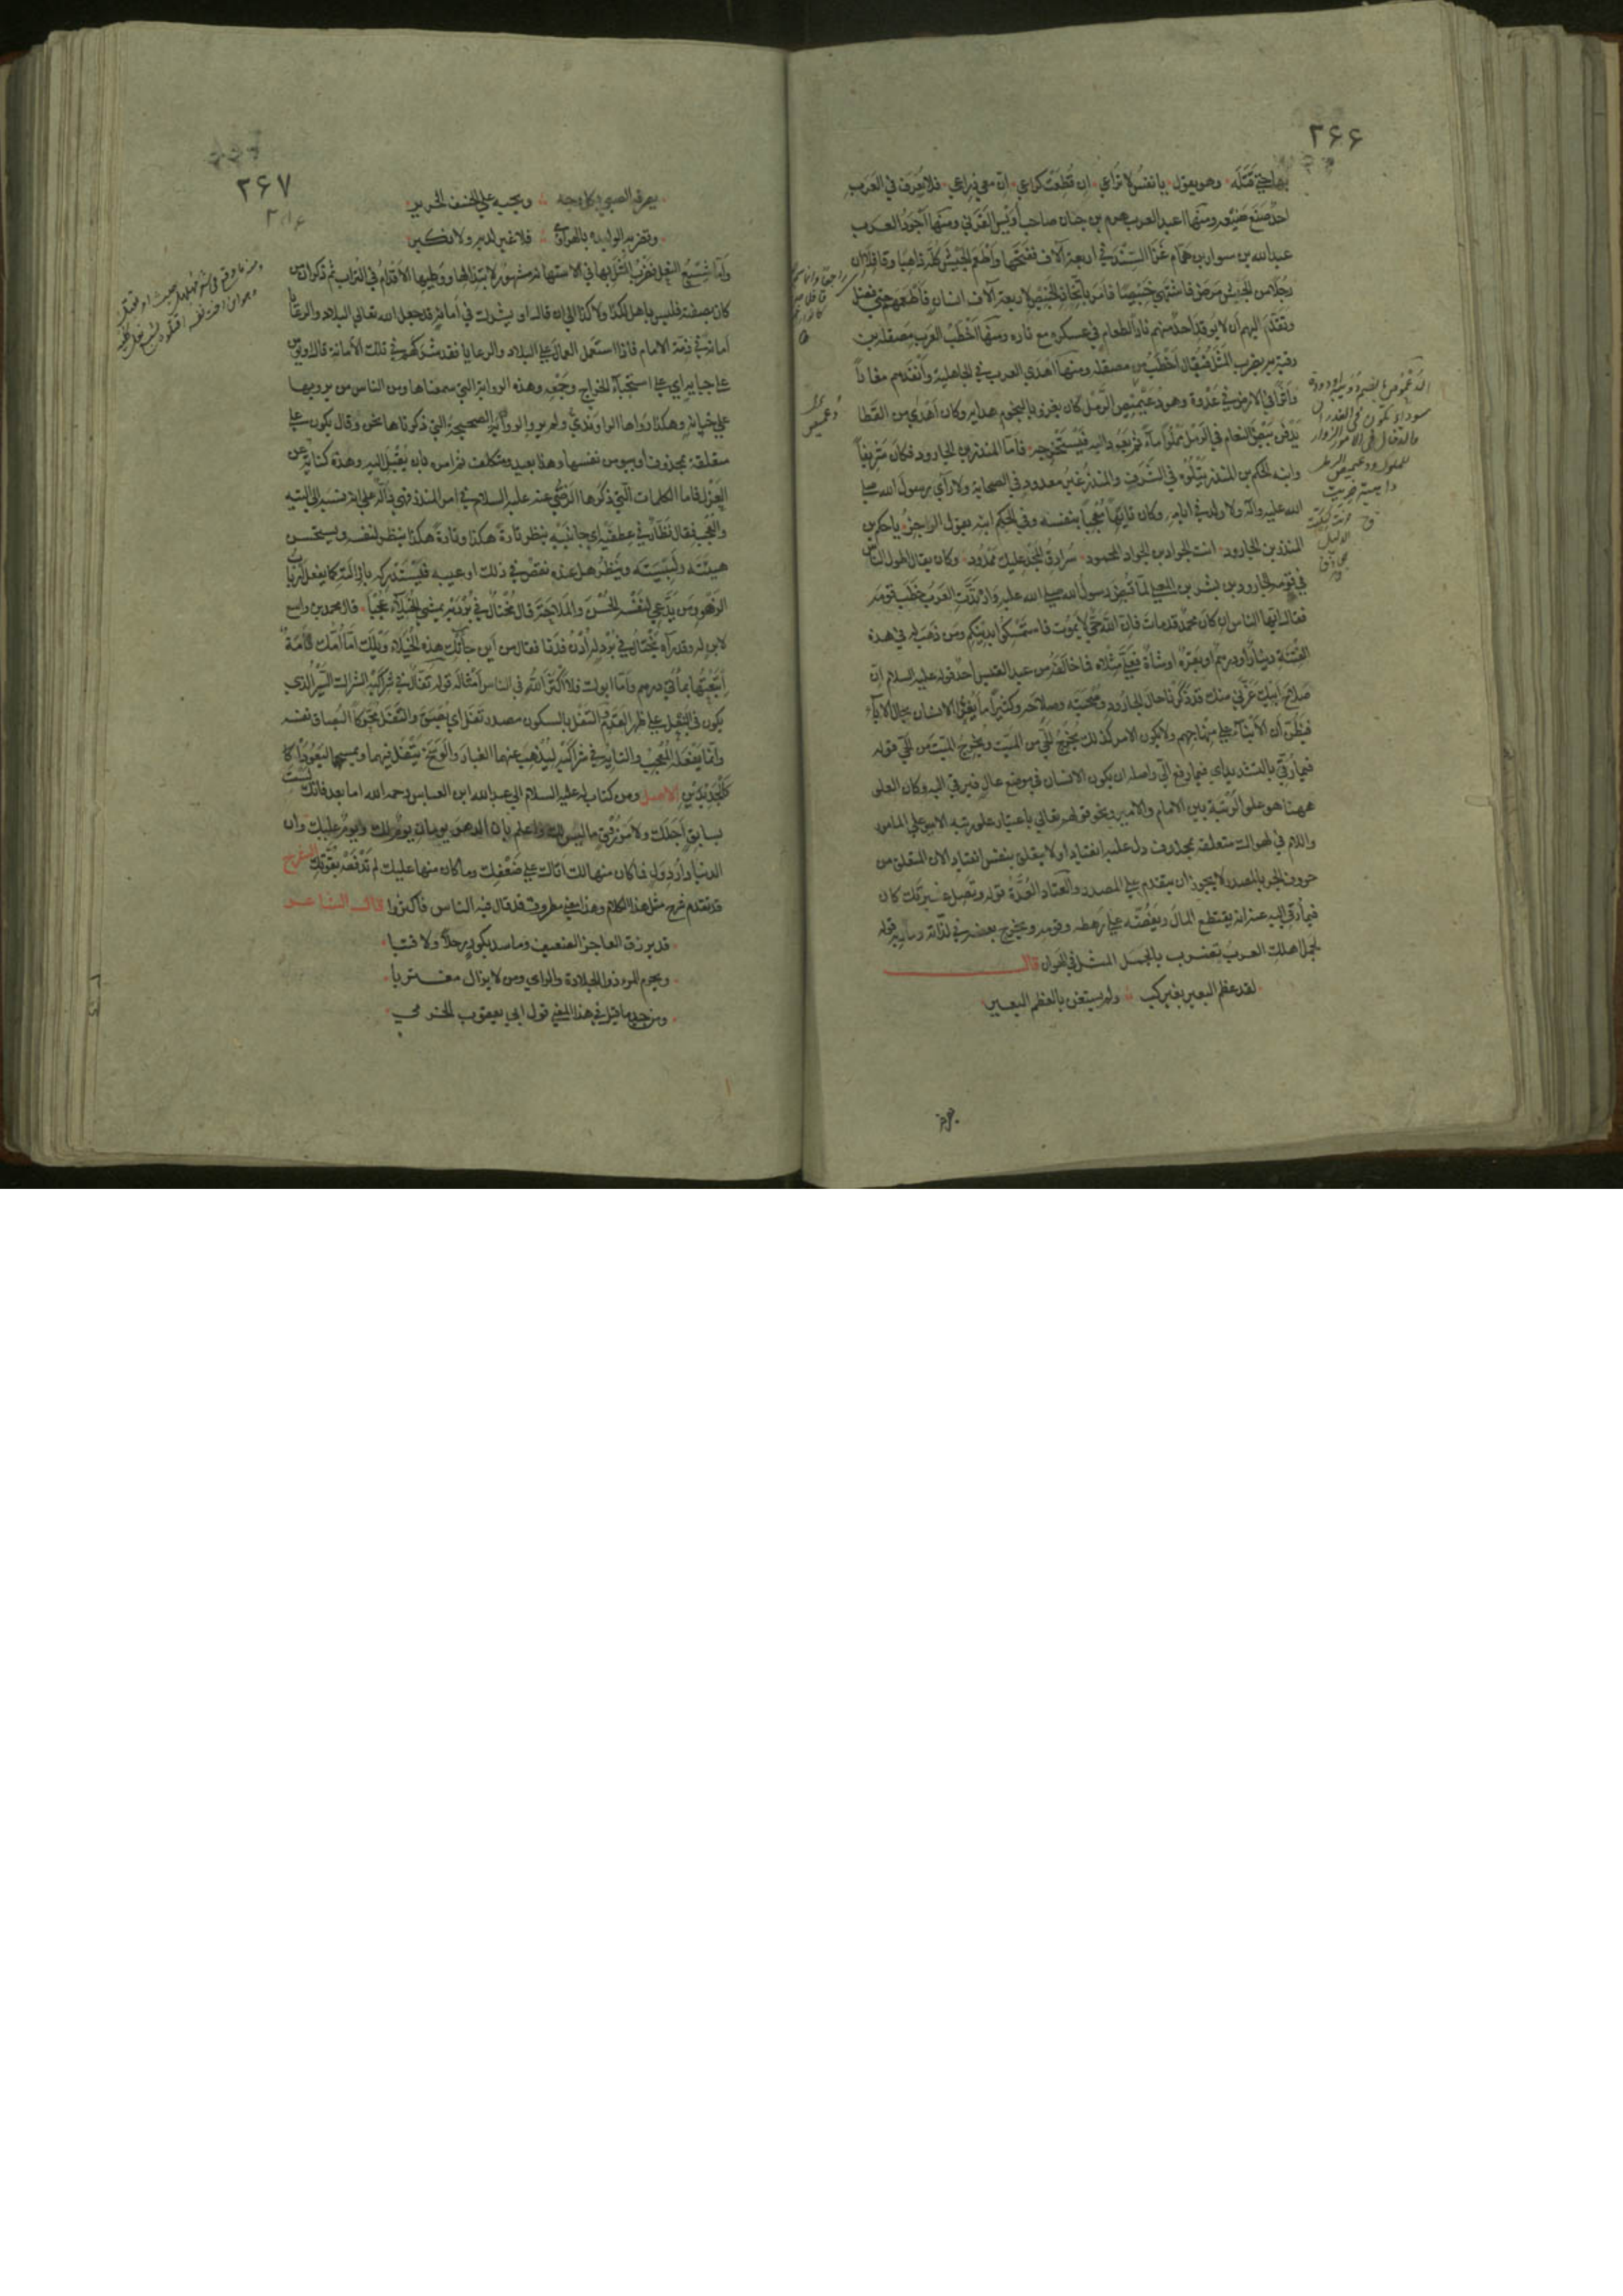 ۲۶۶
بها حتي قتله وهو يقول يا نفس لا تراعي ان قطعت كراعي ان معي ذراعي فلا يعرف في العرب
احد صنع صنيعه ومنها اعبد العرب هرم بن حيان صاحب اويس القرني ومنها اجود العرب
عبدالله بن سوار بن همام غزا السند في اربعة آلاف ففتحها واطعم الجيش كله ذاهبا وقافلا
رجلا من الجيش مرض فاشتهي خبيصا فامر باتخاذ الخبيص لاربعة آلاف انسان فاطعمهم حتي فضل
وتقدم اليهم ان لا يوقد احد منهم نارا لطعام في عسكره مع ناره ومنها اخطب العرب مصقلة بن
رقبة به يضرب المثل فيقال اخطب من مصقلة ومنها اهدي العرب في الجاهلية وابعدهم مغارا
واثرا في الارض في عدوه وهو دعيميص الرمل كان يعرف بالنجوم هداية وكان اهدي من القطا
يدفن بيض النعام في الرمل مملوا ماء ثم يعود اليه فيستخرجه فاما المنذر بن الجارود فكان شريفا
وابنه الحكم بن المنذر يتلوه في الشرف والمنذر غير معدود في الصحابة ولا رآي رسول الله صلي
الله عليه وآله ولا ولد في ايامه وكان تايها معجبا بنفسه وفي الحكم ابنه يقول الراجز يا حكم بن
المنذر بن الجارود انت الجواد بن الجواد المحمود سرادق المجد عليك ممدود وكان يقال اطوع الناس
في قومه الجارود بن بشر بن المعلي لما قبض رسول الله صلي الله عليه وارتدت العرب خطب قومه
فقال ايها الناس ان كان محمد قد مات فان الله حي لا يموت فاستمسكوا بدينكم ومن ذهب له في هذه
الفتنة دينار او درهم او بقرة او شاة فعلي مثلاه فما خالفه من عبد القيس احد قوله عليه السلام ان
صلاح ابيك غرني منك قد ذكرنا حال الجارود وصحبته وصلاحه وكثيرا ما يغتر الانسان بحال الآباء
فيظن ان الابناء علي منهاجهم ولا يكون الامر كذلك يخرج الحي من الميت ويخرج الميت من الحي قوله
فيما رقي بالتشديد اي فيما رفع الي واصله ان يكون الانسان في موضع عال فيرقي اليه وكان العلي
ههنا هو علو الرتبة بين الامام والامير ونحو قولهم تعالي باعتبار علو رتبة الامر علي المامور
واللام في لهواك متعلقة بمحذوف دل عليه انقيادا ولا يتعلق بنفس انقياد لان المتعلق من
حروف الجر بالمصدر لا يجوز ان يتقدم علي المصدر والعتاد العدة قوله وتصل عشيرتك كان
فيما رقي اليه عنه انه يقتطع المال ويفيضه علي رهطه وقومه ويخرج بعضه في لذاته ومآربه قوله
لجمل اهلك العرب تضرب بالجمل المثل في الهوان قال
لقد عظم البعير بغير لب ولم يستغن بالعظم البعير
۲۶۷
يصرفه الصبي بكل وجه ويحبسه علي الخسف الجرير
وتضربه الوليدة بالهراوي فلا غير لديه ولا نكير
واما شسع النعل فضرب المثل بها في الاستهانة مشهور لابتذالها ووطيها الاقدام في التراب ثم ذكر انه من
كان بصفته فليس باهل لكذا ولا كذا الي ان قال او يشرك في امانة قد جعل الله تعالي البلاد والرعايا
امانة في ذمة الامام فاذا استعمل العمال علي البلاد والرعايا فقد شركهم في تلك الامانة قال او يؤمن
علي جباية اي علي استجباء الخراج وجمعه وهذه الرواية التي سمعناها ومن الناس من يرويها
علي خيانة وهكذا رواها الراوندي ولم يرو الرواية الصحيحة التي ذكرناها نحن وقال يكون علي
متعلقة بمحذوف او بيومن نفسها وهذا بعيد ومتكلف ثم امره بان يقبل اليه وهذه كناية عن
العزل فاما الكلمات التي ذكرها الرضي عنه عليه السلام في امر المنذر فهي دالة علي انه نسبه الي التيه
والعجب فقال نظار في عطفيه اي جانبيه ينظر تارة هكذا وتارة هكذا ينظر لنفسه ويستحسن
هيئته ولبسته وينظر هل عنده نقص في ذلك او عيب فيستدركه بازالته كما يفعل ارباب
الزهو ومن يدعي لنفسه الحسن والملاحة قال مختال في برديه يمشي الخيلاء عجبا قال محمد بن واسع
لابن له وقد رآه يختال في برد له ادن فدنا فقال من اين جاءتك هذه الخيلاء ويلك اما امك فامة
ابتعتها بمأتي درهم واما ابوك فلا اكثر الله في الناس امثاله قوله تفال في شراكيه الشراك السير الذي
يكون في النعل علي ظهر القدم والتفل بالسكون مصدر تفل اي بصق والتفل محركا البصاق نفسه
وانما يفعله المعجب والتايه في شراكيه ليذهب عنهما الغبار والوسخ يتفل فيهما ويمسحهما ليعودا كا
لجديدين الاصل ومن كتاب له عليه السلام الي عبدالله ابن العباس رحمه الله اما بعد فانك لست
بسابق اجلك ولا مرزوق ما ليس لك واعلم بان الدهر يومان يوم لك ويوم عليك وان
الدنيا دار دول فما كان منها لك اتاك علي ضعفك وما كان منها عليك لم تدفعه بقوتك الشرح
قد تقدم شرح مثل هذا الكلام وهذا معني مطروق قد قال فيه الناس فاكثروا قال الشاعر
قد يرزق العاجز الضعيف وما شد بكور رحلا ولا قتبا
ويحرم المرء ذو الجلادة والراي ومن لا يزال مغتربا
ومن جيد ما قيل في هذا المعني قول ابي يعقوب الخريمي